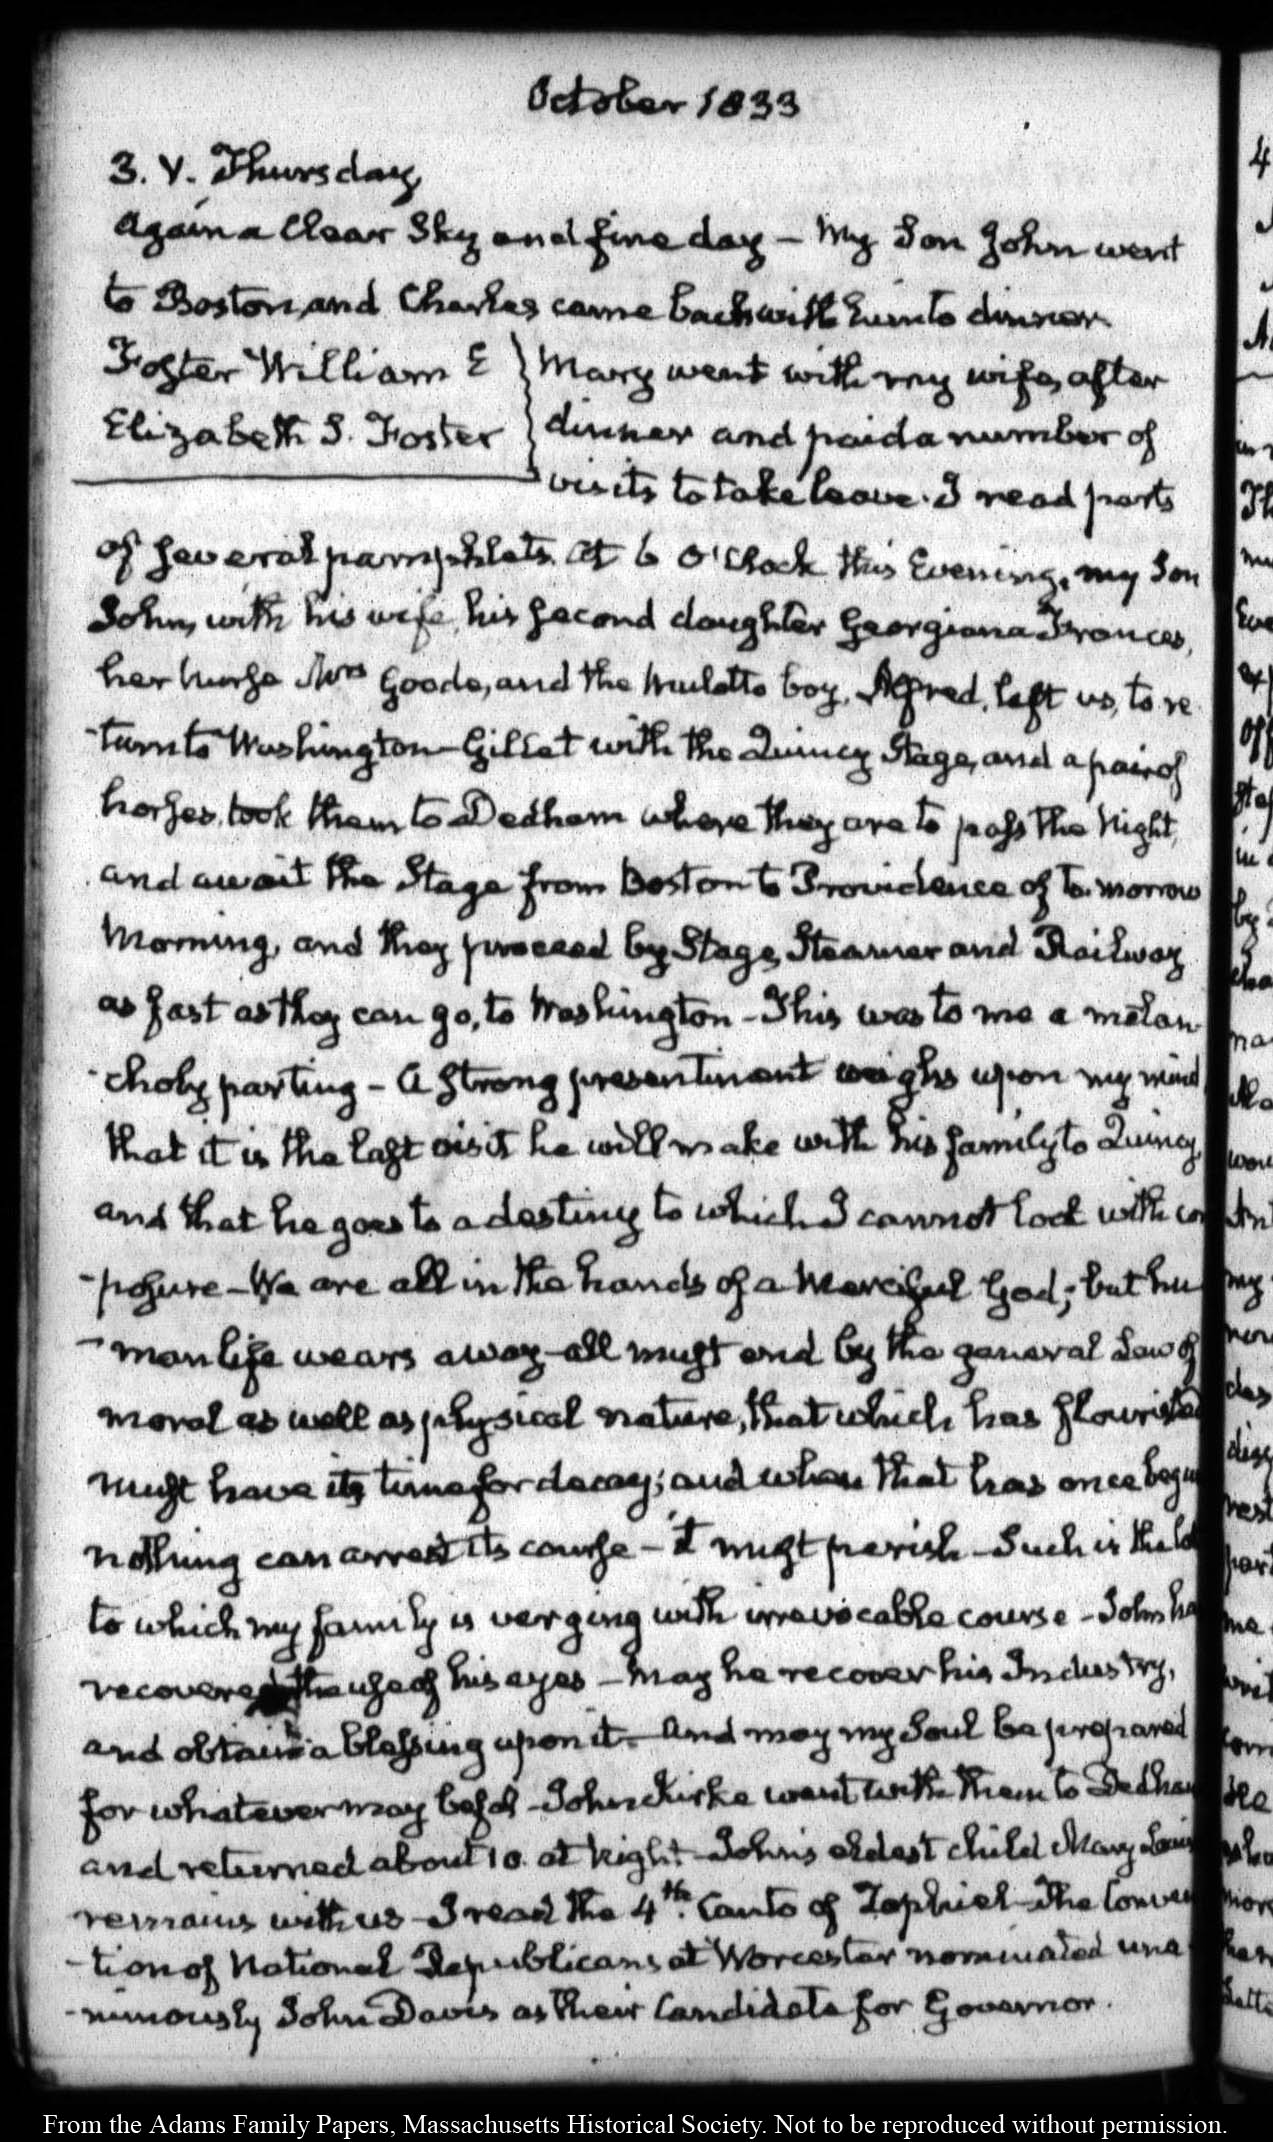 October 1833
3. V. Thursday
Again a clear Sky and fine day – My Son John went
to Boston, and Charles came back with him to dinner.
Foster William E
Elizabeth S. Foster
Mary went with my wife, after
dinner and paid a number of
visits to take leave. I read parts
of several pamphlets. At 6 O'Clock this Evening, my Son
John, with his wife, his second daughter Georgiana Frances,
her nurse Mrs Goods, and the Mulatto boy, Alfred, left us, to re
-turn to Washington – Gillet with the Quincy Stage, and a pair of
horses, took them to Dedham where they are to pass the Night,
and await the Stage from Boston to Providence of to-morrow
Morning, and they proceed by Stage, Steamer and Railway
as fast as they can go, to Washington – This was to me a melan
-choly parting – A strong presentiment weighs upon my mind
that it is the last visit he will make with his family to Quincy,
and that he goes to a destiny to which I cannot look with com
-posure – We are all in the hands of a Merciful God; but hu
-man life wears away – all must end by the general Law of
moral as well as physical nature, that which has flourished
must have its time for decay; and when that has once begun
nothing can arrest its course – it must perish – Such is the lot
to which my family is verging with irrevocable course – John has
recovered the use of his eyes – May he recover his Industry,
and obtain a blessing upon it – And may my Soul be prepared
for whatever may befal – John Kirke went with them to Dedham
and returned about 10. at Night – John's eldest child Mary Louisa
remains with us – I read the 4th. Canto of Zophiel – The Conven
-tion of National Republicans at Worcester nominated una
-nimously John Davis as their Candidate for Governor.
From the Adams Family Papers, Massachusetts Historical Society. Not to be reproduced without permission.